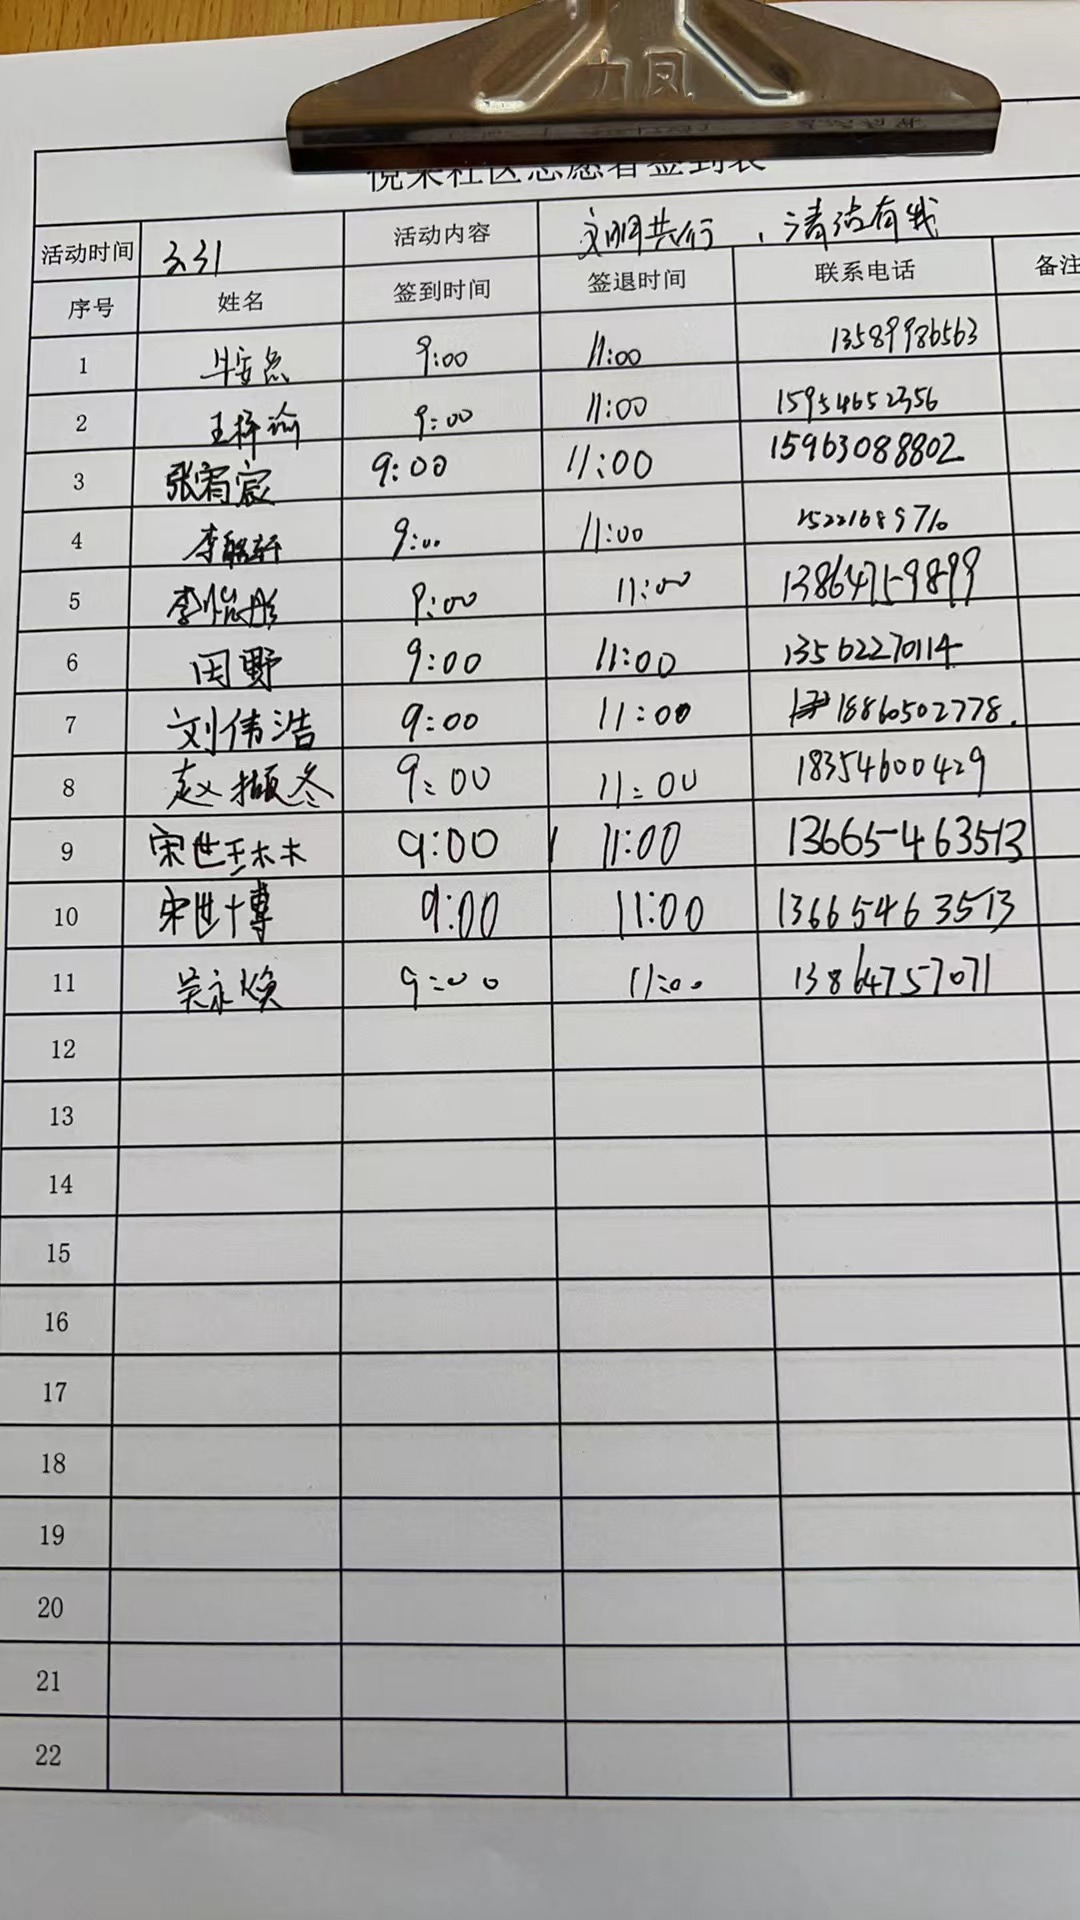 力凤
悦来社区志愿者签到表
活动时间 3.31 活动内容 文明共行，清洁有我
序号 姓名 签到时间 签退时间 联系电话 备注
1 9:00 11:00 13589986563
2 王梓谕 9:00 11:00 15954652356
3 张宥宸 9:00 11:00 15963088802
4 李 轩 9:00 11:00
5 李怡彤 9:00 11:00 13864759899
6 田野 9:00 11:00 13562270114
7 刘伟浩 9:00 11:00 18860502778.
8 赵撷冬 9:00 11:00 18354600429
9 宋世王木木 9:00 11:00 13665463513
10 宋世博 9:00 11:00 13665463513
11 吴永焕 9:00 11:00 13864757071
12
13
14
15
16
17
18
19
20
21
22